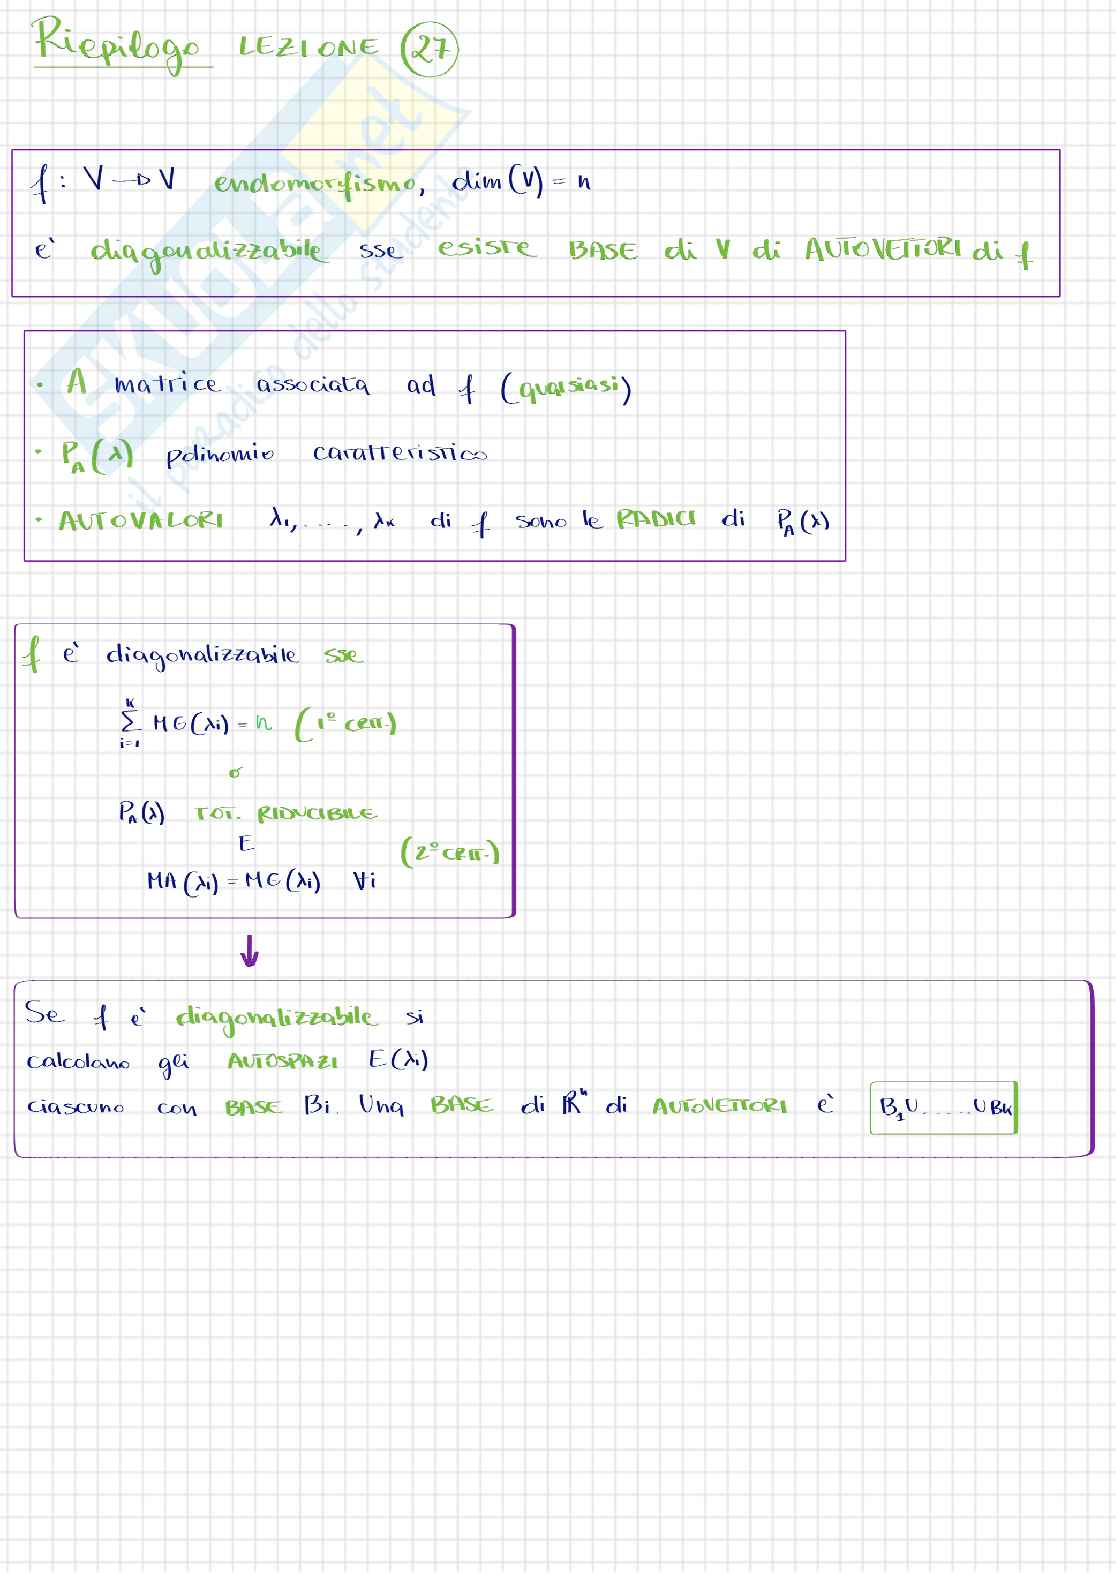 Riepilogo LEZIONE 27
f: V → V endomorfismo, dim(V) = n
è diagonalizzabile sse esiste BASE di V di AUTOVETTORI di f
• A matrice associata ad f (qualsiasi)
• P_A(λ) polinomio caratteristico
• AUTOVALORI λ₁, ....., λₖ di f sono le RADICI di P_A(λ)
f è diagonalizzabile sse
∑_{i=1}^{k} MG(λi) = n (1° crit.)
o
P_A(λ) TOT. RIDUCIBILE
E
(2° crit.)
MA(λi) = MG(λi) ∀i
Se f è diagonalizzabile si
calcolano gli AUTOSPAZI E(λi)
ciascuno con BASE Bi. Una BASE di ℝⁿ di AUTOVETTORI è B₁∪.....∪Bk
SKUOLA.net
il paradiso dello studente